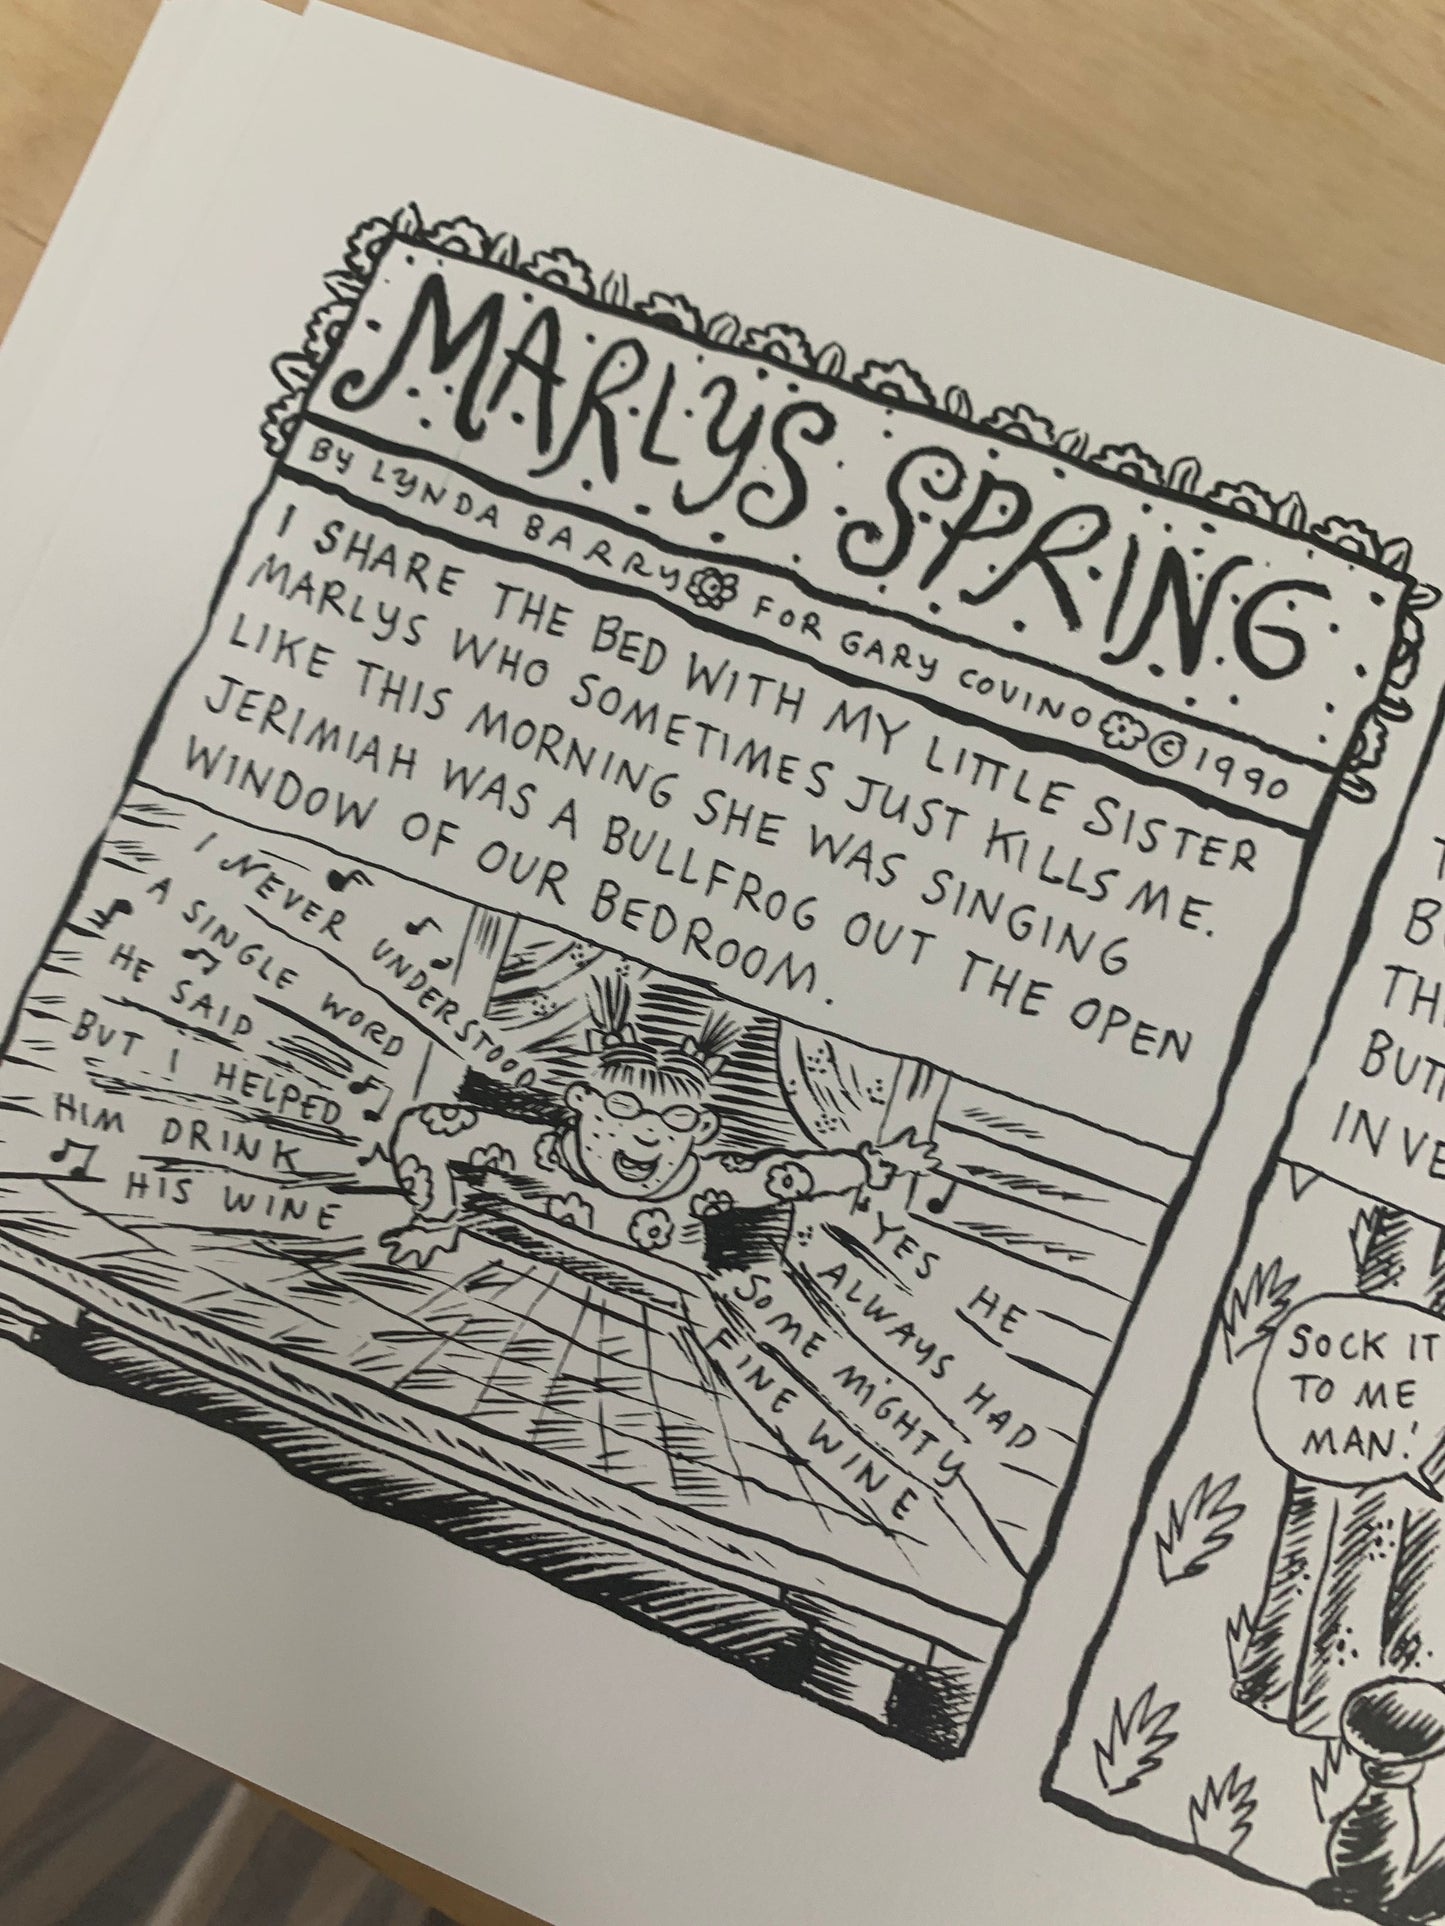 MARLYS SPRING
BY LYNDA BARRY FOR GARY COVINO © 1990
I SHARE THE BED WITH MY LITTLE SISTER
MARLYS WHO SOMETIMES JUST KILLS ME.
LIKE THIS MORNING SHE WAS SINGING
JERIMIAH WAS A BULLFROG OUT THE OPEN
WINDOW OF OUR BEDROOM.
I NEVER UNDERSTOOD
A SINGLE WORD
HE SAID
BUT I HELPED
HIM DRINK
HIS WINE
YES HE
ALWAYS HAD
SOME MIGHTY
FINE WINE
SOCK IT
TO ME
MAN!